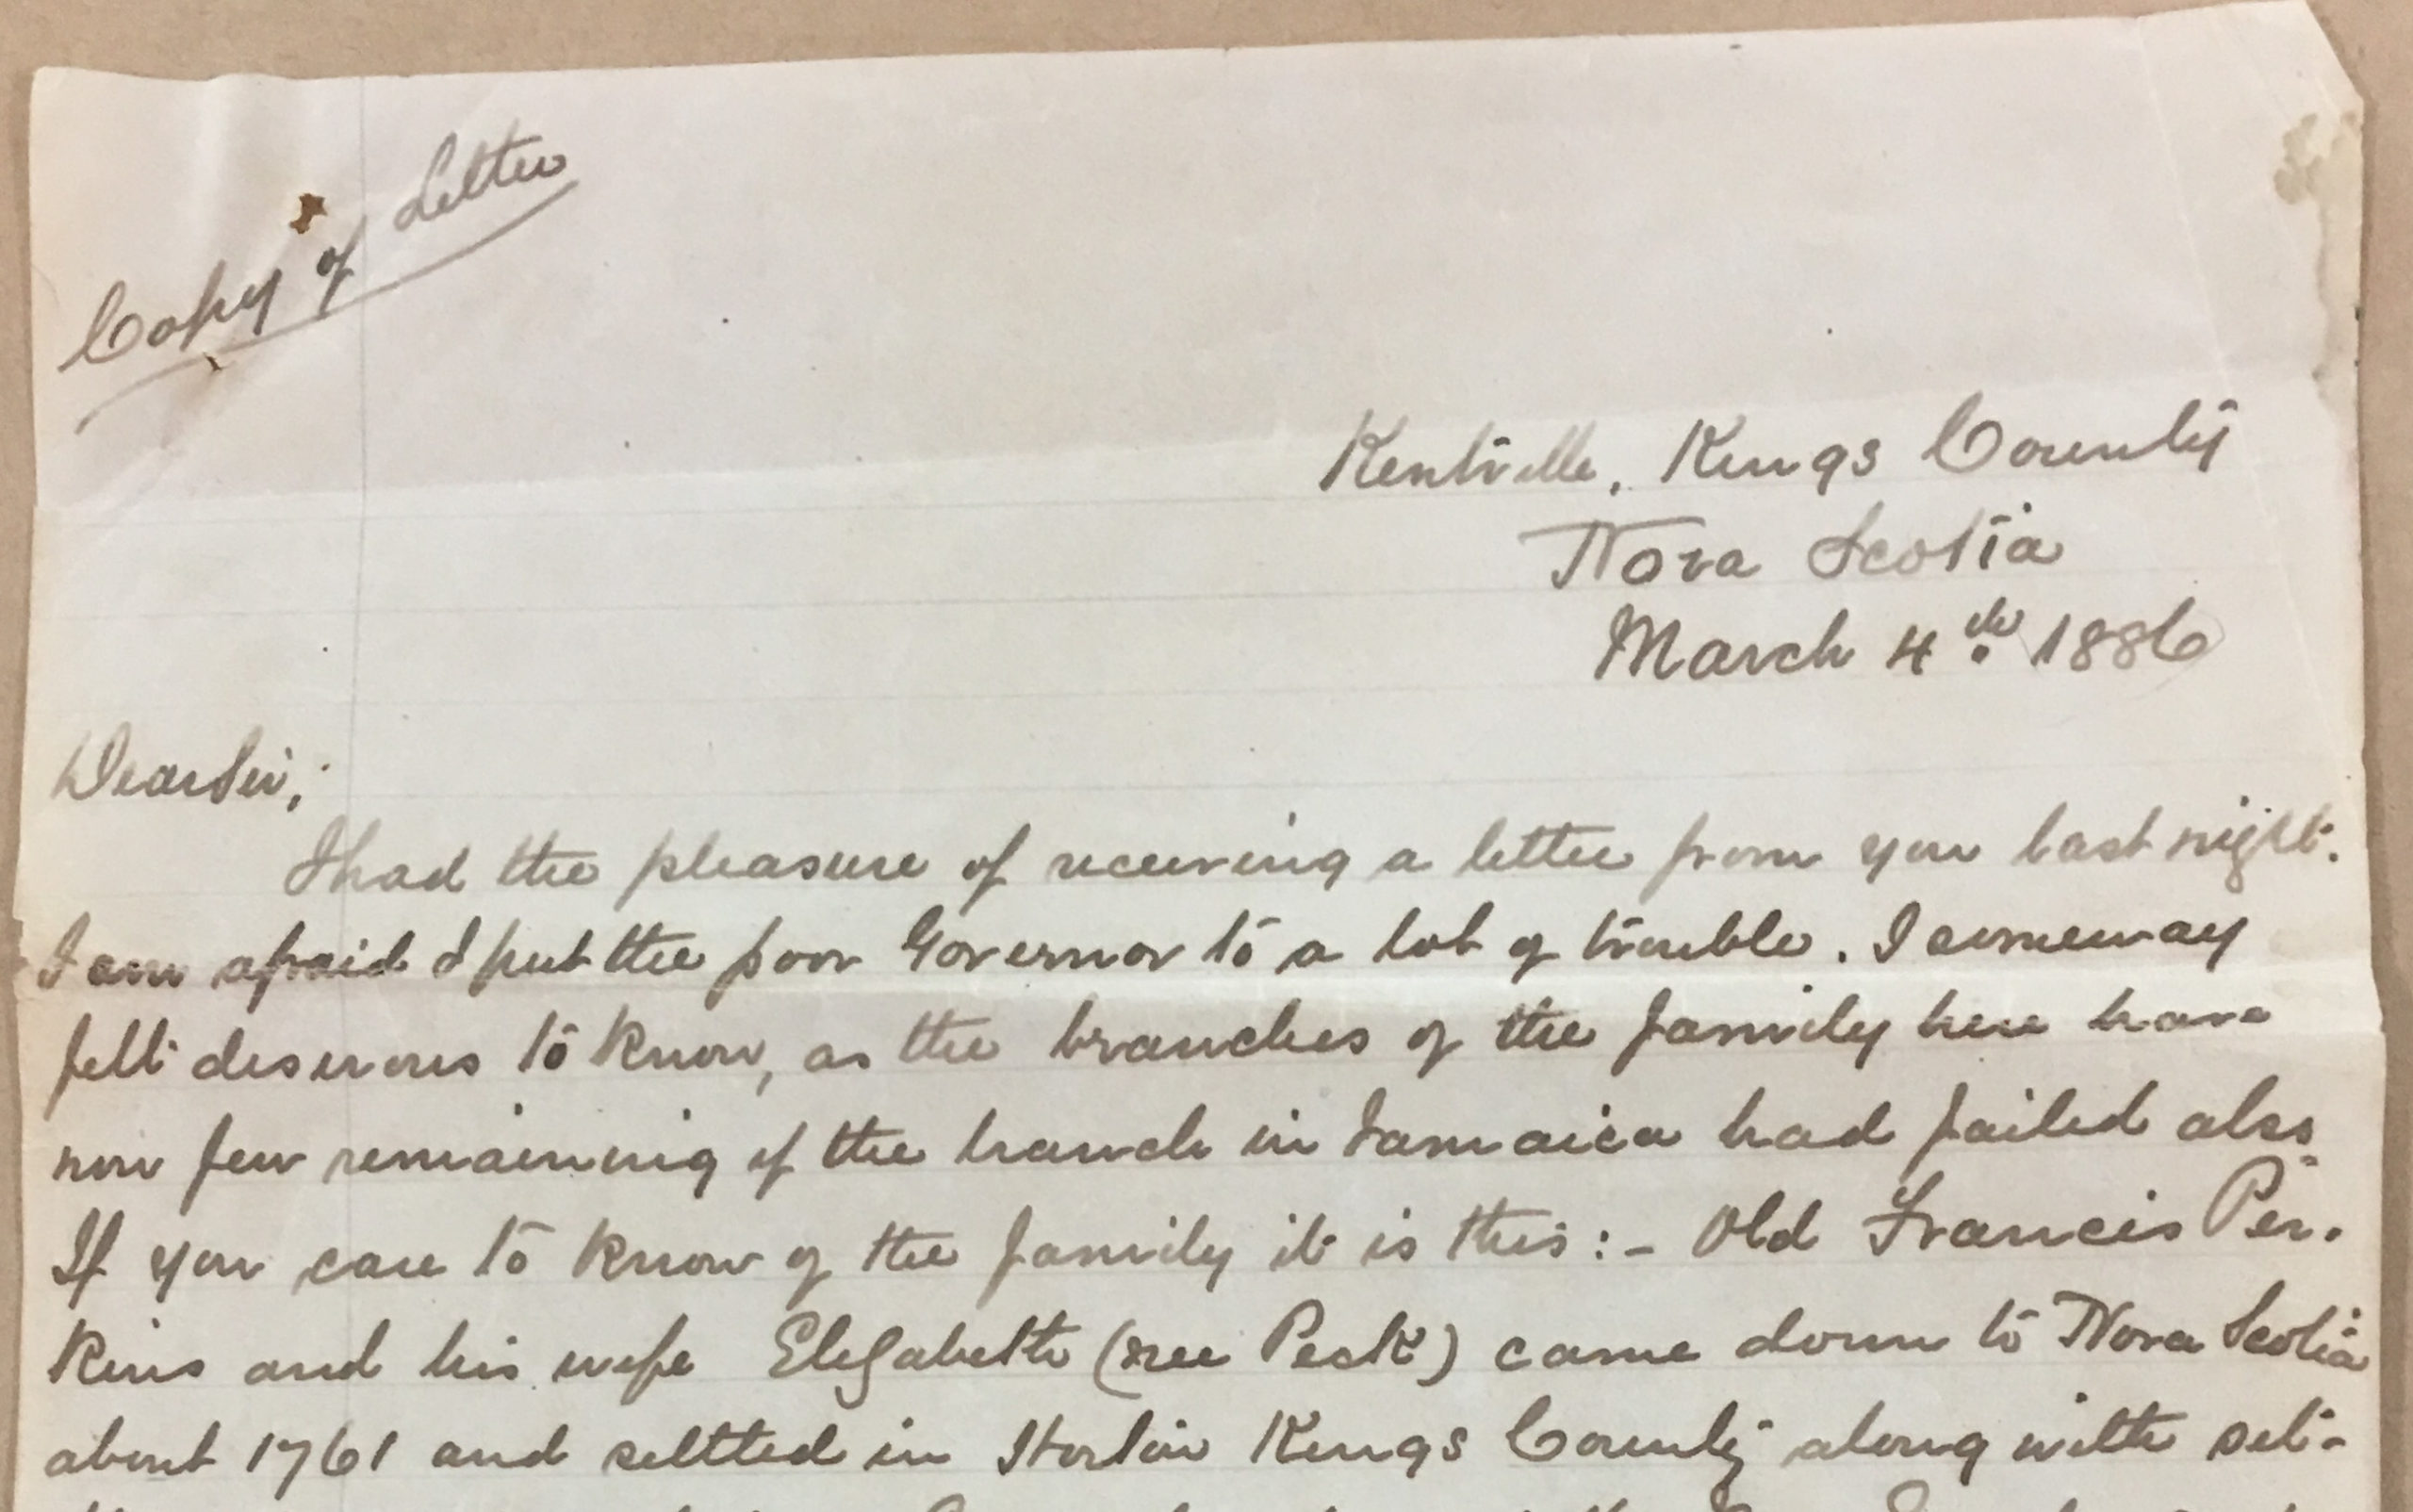 Copy of Letter
Kentville, Kings County
Nova Scotia
March 4th 1886
Dear Sir;
I had the pleasure of receiving a letter from you last night.
I am afraid I put the poor Governor to a lot of trouble. I someway
felt desirous to know, as the branches of the family here have
now few remaining if the branch in Jamaica had failed also
If you care to know of the family it is this:- Old Francis Per.
kins and his wife Elizabeth (nee Peck) came down to Nova Scotia
about 1761 and settled in Horton Kings County along with set-